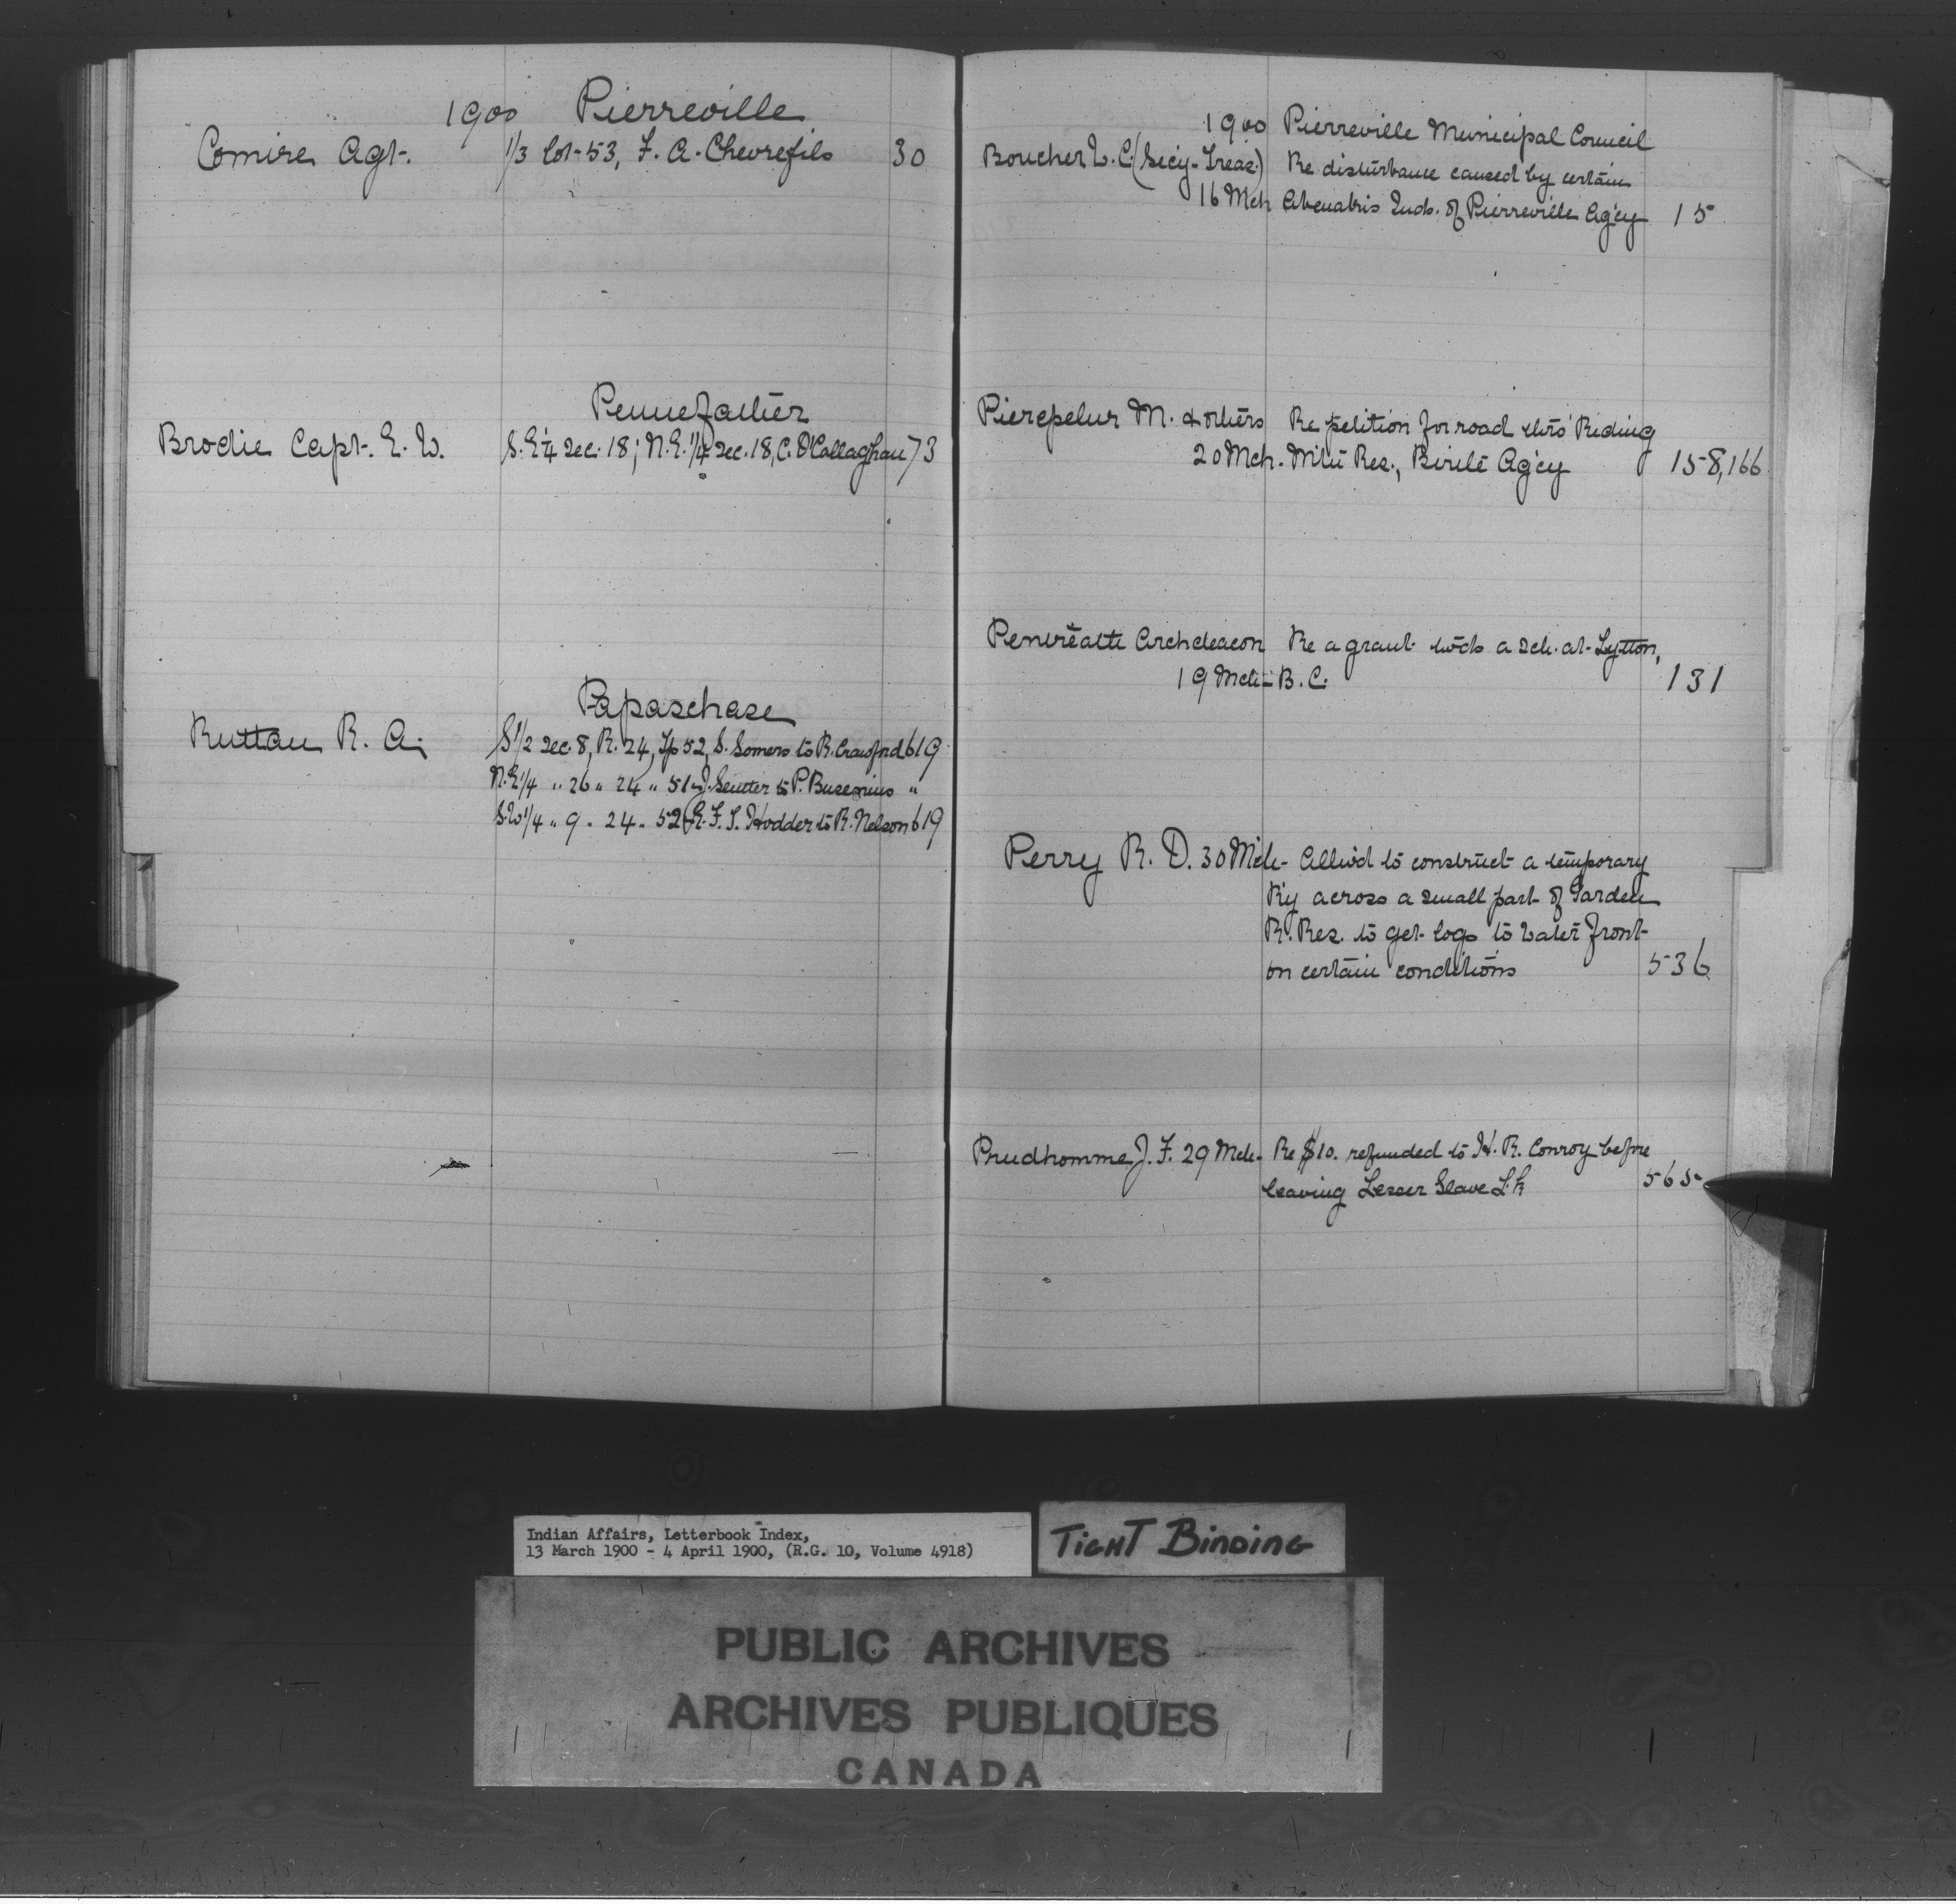 1900 Pierreville
Comire Agt. 1/3 lot 53, F. A. Chevrefils 30
Pennefather
Brodie Capt. E. W. S.E 1/4 Sec. 18; N.E. 1/4 Sec. 18, C. O'Callaghan 73
Papaschase
Ruttan R. A. S 1/2 Sec. 8, R. 24, Tp 52, S. Somers to R. Crawford 619
N.E 1/4 " 26 " 24 " 51 J. Seutter to P. Busenius "
S.W 1/4 " 9 " 24 " 52 R. F. S. Hodder to R. Nelson 619
1900 Pierreville Municipal Council
Boucher L. C. (Secy-Treas.) Re disturbance caused by certain
16 Mch Abenakis Inds. of Pierreville Agcy 15
Pierepelur M. & others Re petition for road thro' Riding
20 Mch. Mtn Res., Birtle Agcy 158,166
Pentreath Archdeacon Re a grant twds a sch. at Lytton,
19 Mch B.C. 131
Perry R. D. 30 Mch Allw'd to construct a temporary
R'y across a small part of Garden
R. Res. to get logs to water front
on certain conditions 536
Prudhomme J. F. 29 Mch Re $10. refunded to H. R. Conroy before
leaving Lesser Slave Lk 565
Indian Affairs, Letterbook Index,
13 March 1900 - 4 April 1900, (R.G. 10, Volume 4918)
TIGHT BINDING
PUBLIC ARCHIVES
ARCHIVES PUBLIQUES
CANADA